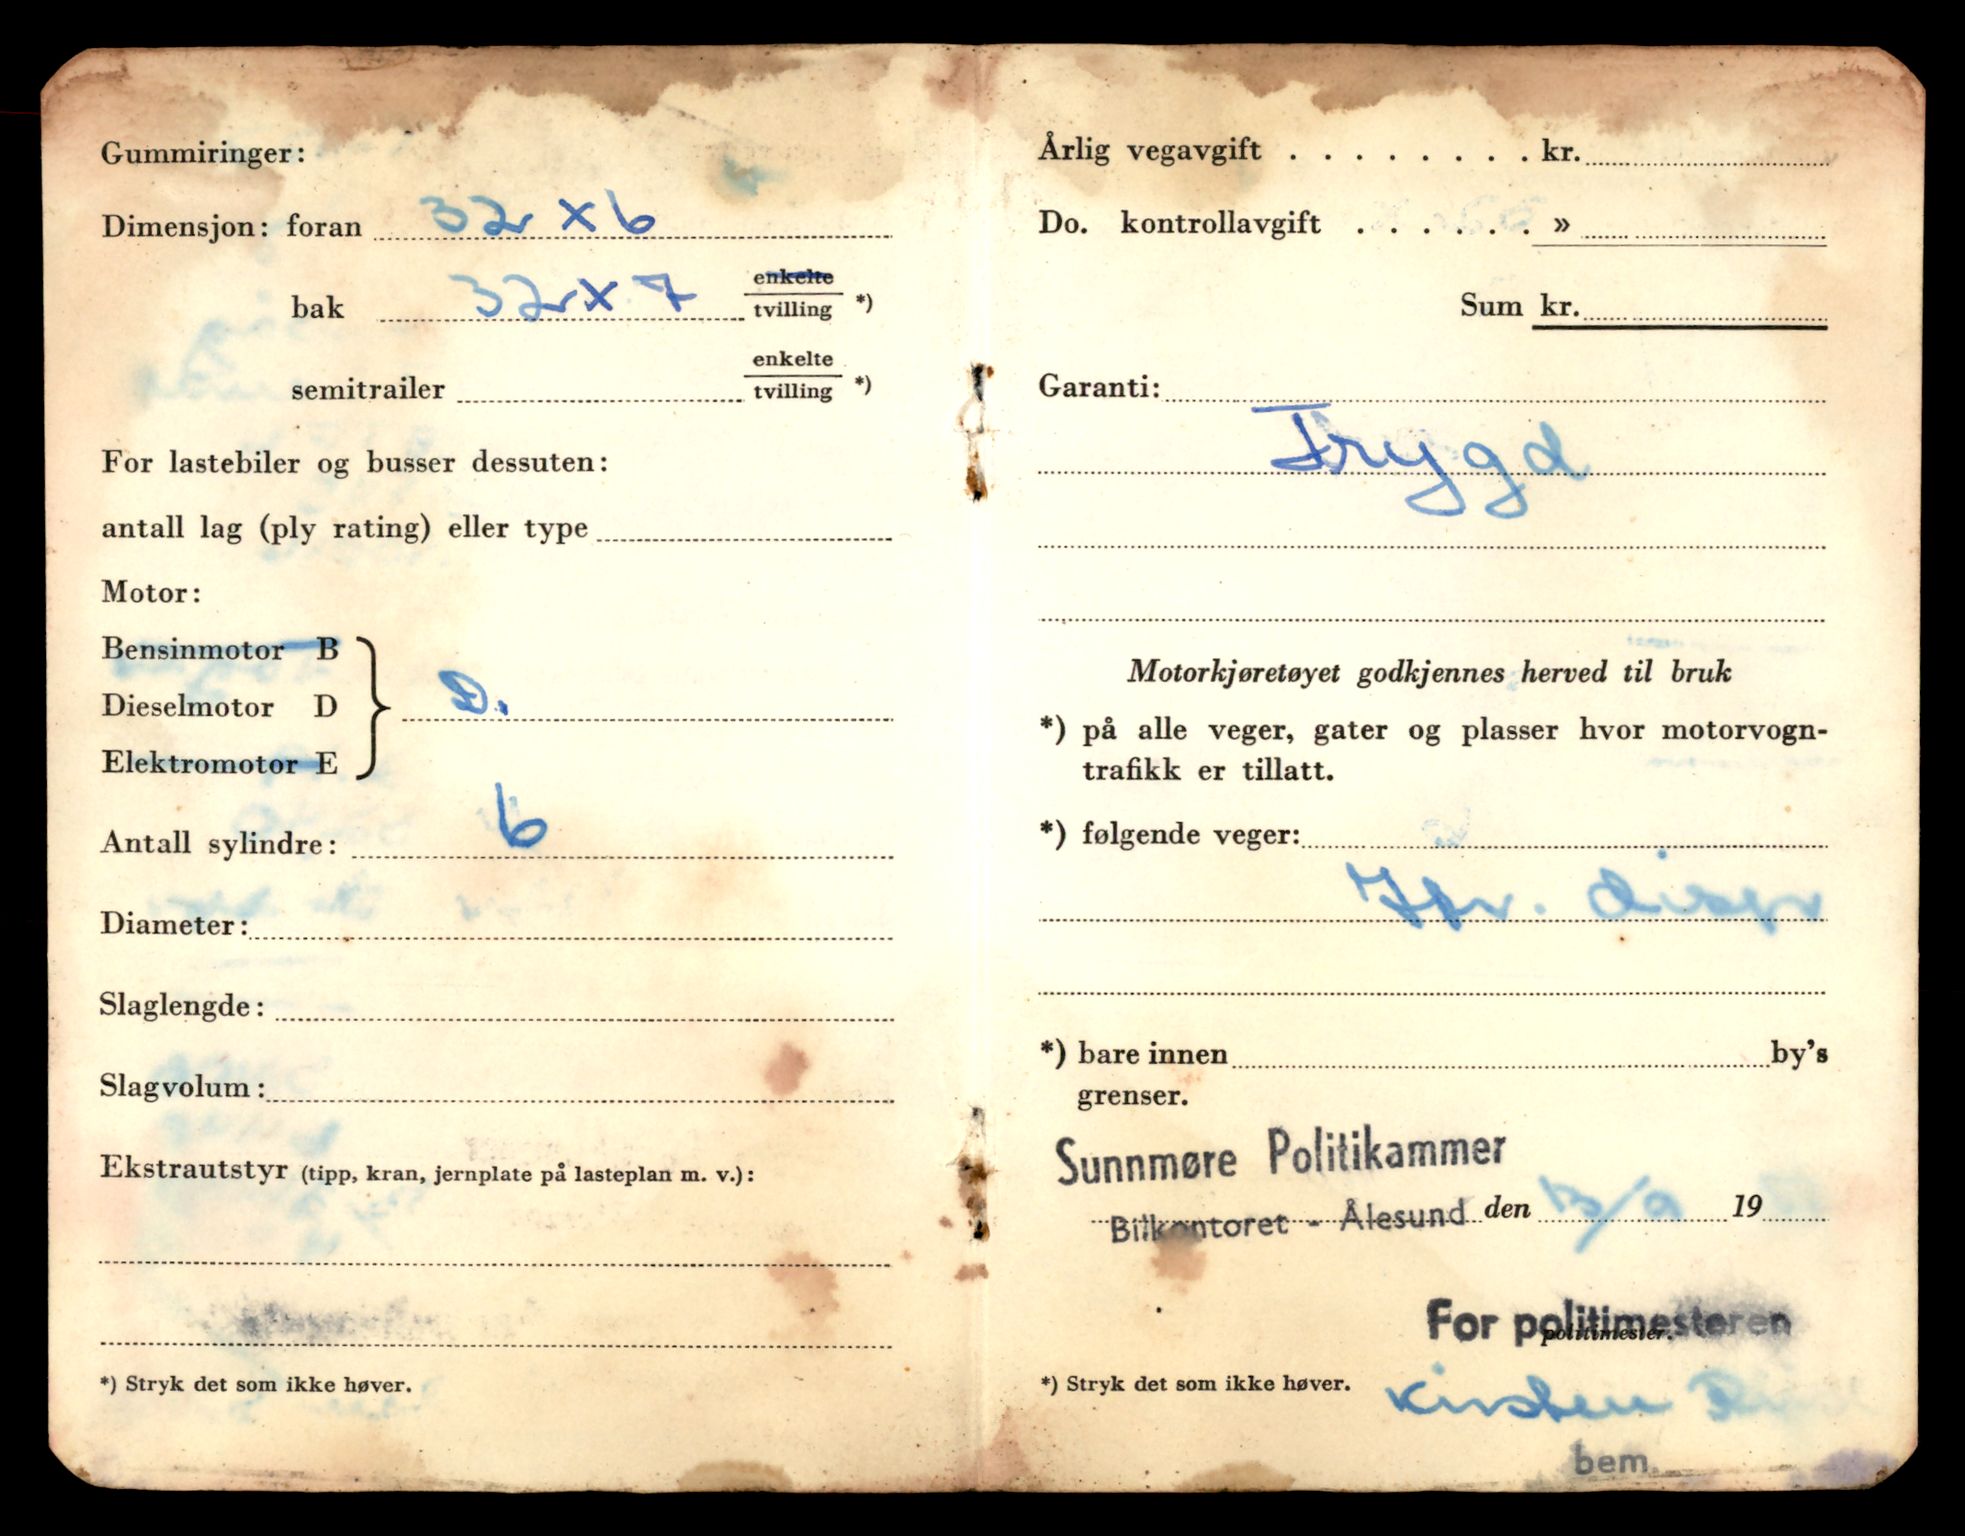 Gummiringer:
Dimensjon: foran 32 x 6
bak 32 x 7 enkelte
tvilling *)
semitrailer enkelte
tvilling *)
For lastebiler og busser dessuten:
antall lag (ply rating) eller type
Motor:
Bensinmotor B
Dieselmotor D D.
Elektromotor E
Antall sylindre: 6
Diameter:
Slaglengde:
Slagvolum:
Ekstrautstyr (tipp, kran, jernplate på lasteplan m. v.):
*) Stryk det som ikke høver.
Årlig vegavgift . . . . . . . . kr.
Do. kontrollavgift . . . . . . »
Sum kr.
Garanti:
Trygd
Motorkjøretøyet godkjennes herved til bruk
*) på alle veger, gater og plasser hvor motorvogn-
trafikk er tillatt.
*) følgende veger:
*) bare innen by's
grenser.
Sunnmøre Politikammer
Bilkontoret - Ålesund den 13/9 19
For politimesteren
politimester.
*) Stryk det som ikke høver. Kirsten
bem.